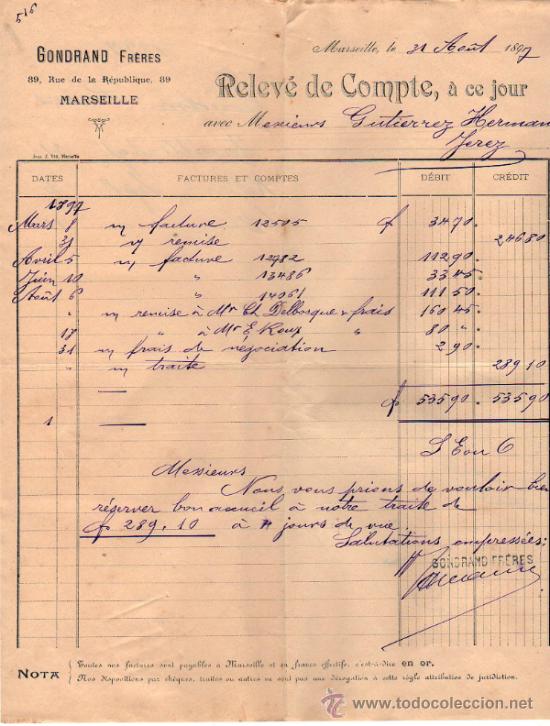 516
GONDRAND FRÈRES
89, Rue de la République, 89
MARSEILLE
Marseille, le 31 Août 1897
Relevé de Compte, à ce jour
avec Messieurs Gutierrez Herman
Jerez
DATES FACTURES ET COMPTES DÉBIT CRÉDIT
1897
Mars 8 n/ facture 12505 f 34 70
31 v/ remise 246 80
Avril 5 n/ facture 12982 112 90
Juin 10 " 13486 33 45
Août 6 " 14061 111 50
" n/ remise à Mr Ch Delbosque & frais 160 45
18 " à Mr E Roux " 80 "
31 n/ frais de négociation 2 90
" n/ traite 289 10
f 535 90 535 90
1
S E ou O
Messieurs
Nous vous prions de vouloir bien
réserver bon accueil à notre traite de
f 289,10 à 4 jours de vue
Salutations empressées
GONDRAND FRÈRES
NOTA
Toutes nos factures sont payables à Marseille et en francs effectifs, c'est-à-dire en or.
Nos dispositions par chèques, traites ou autres ne sont pas une dérogation à cette règle attributive de juridiction.
todocoleccion.net
www.todocoleccion.net